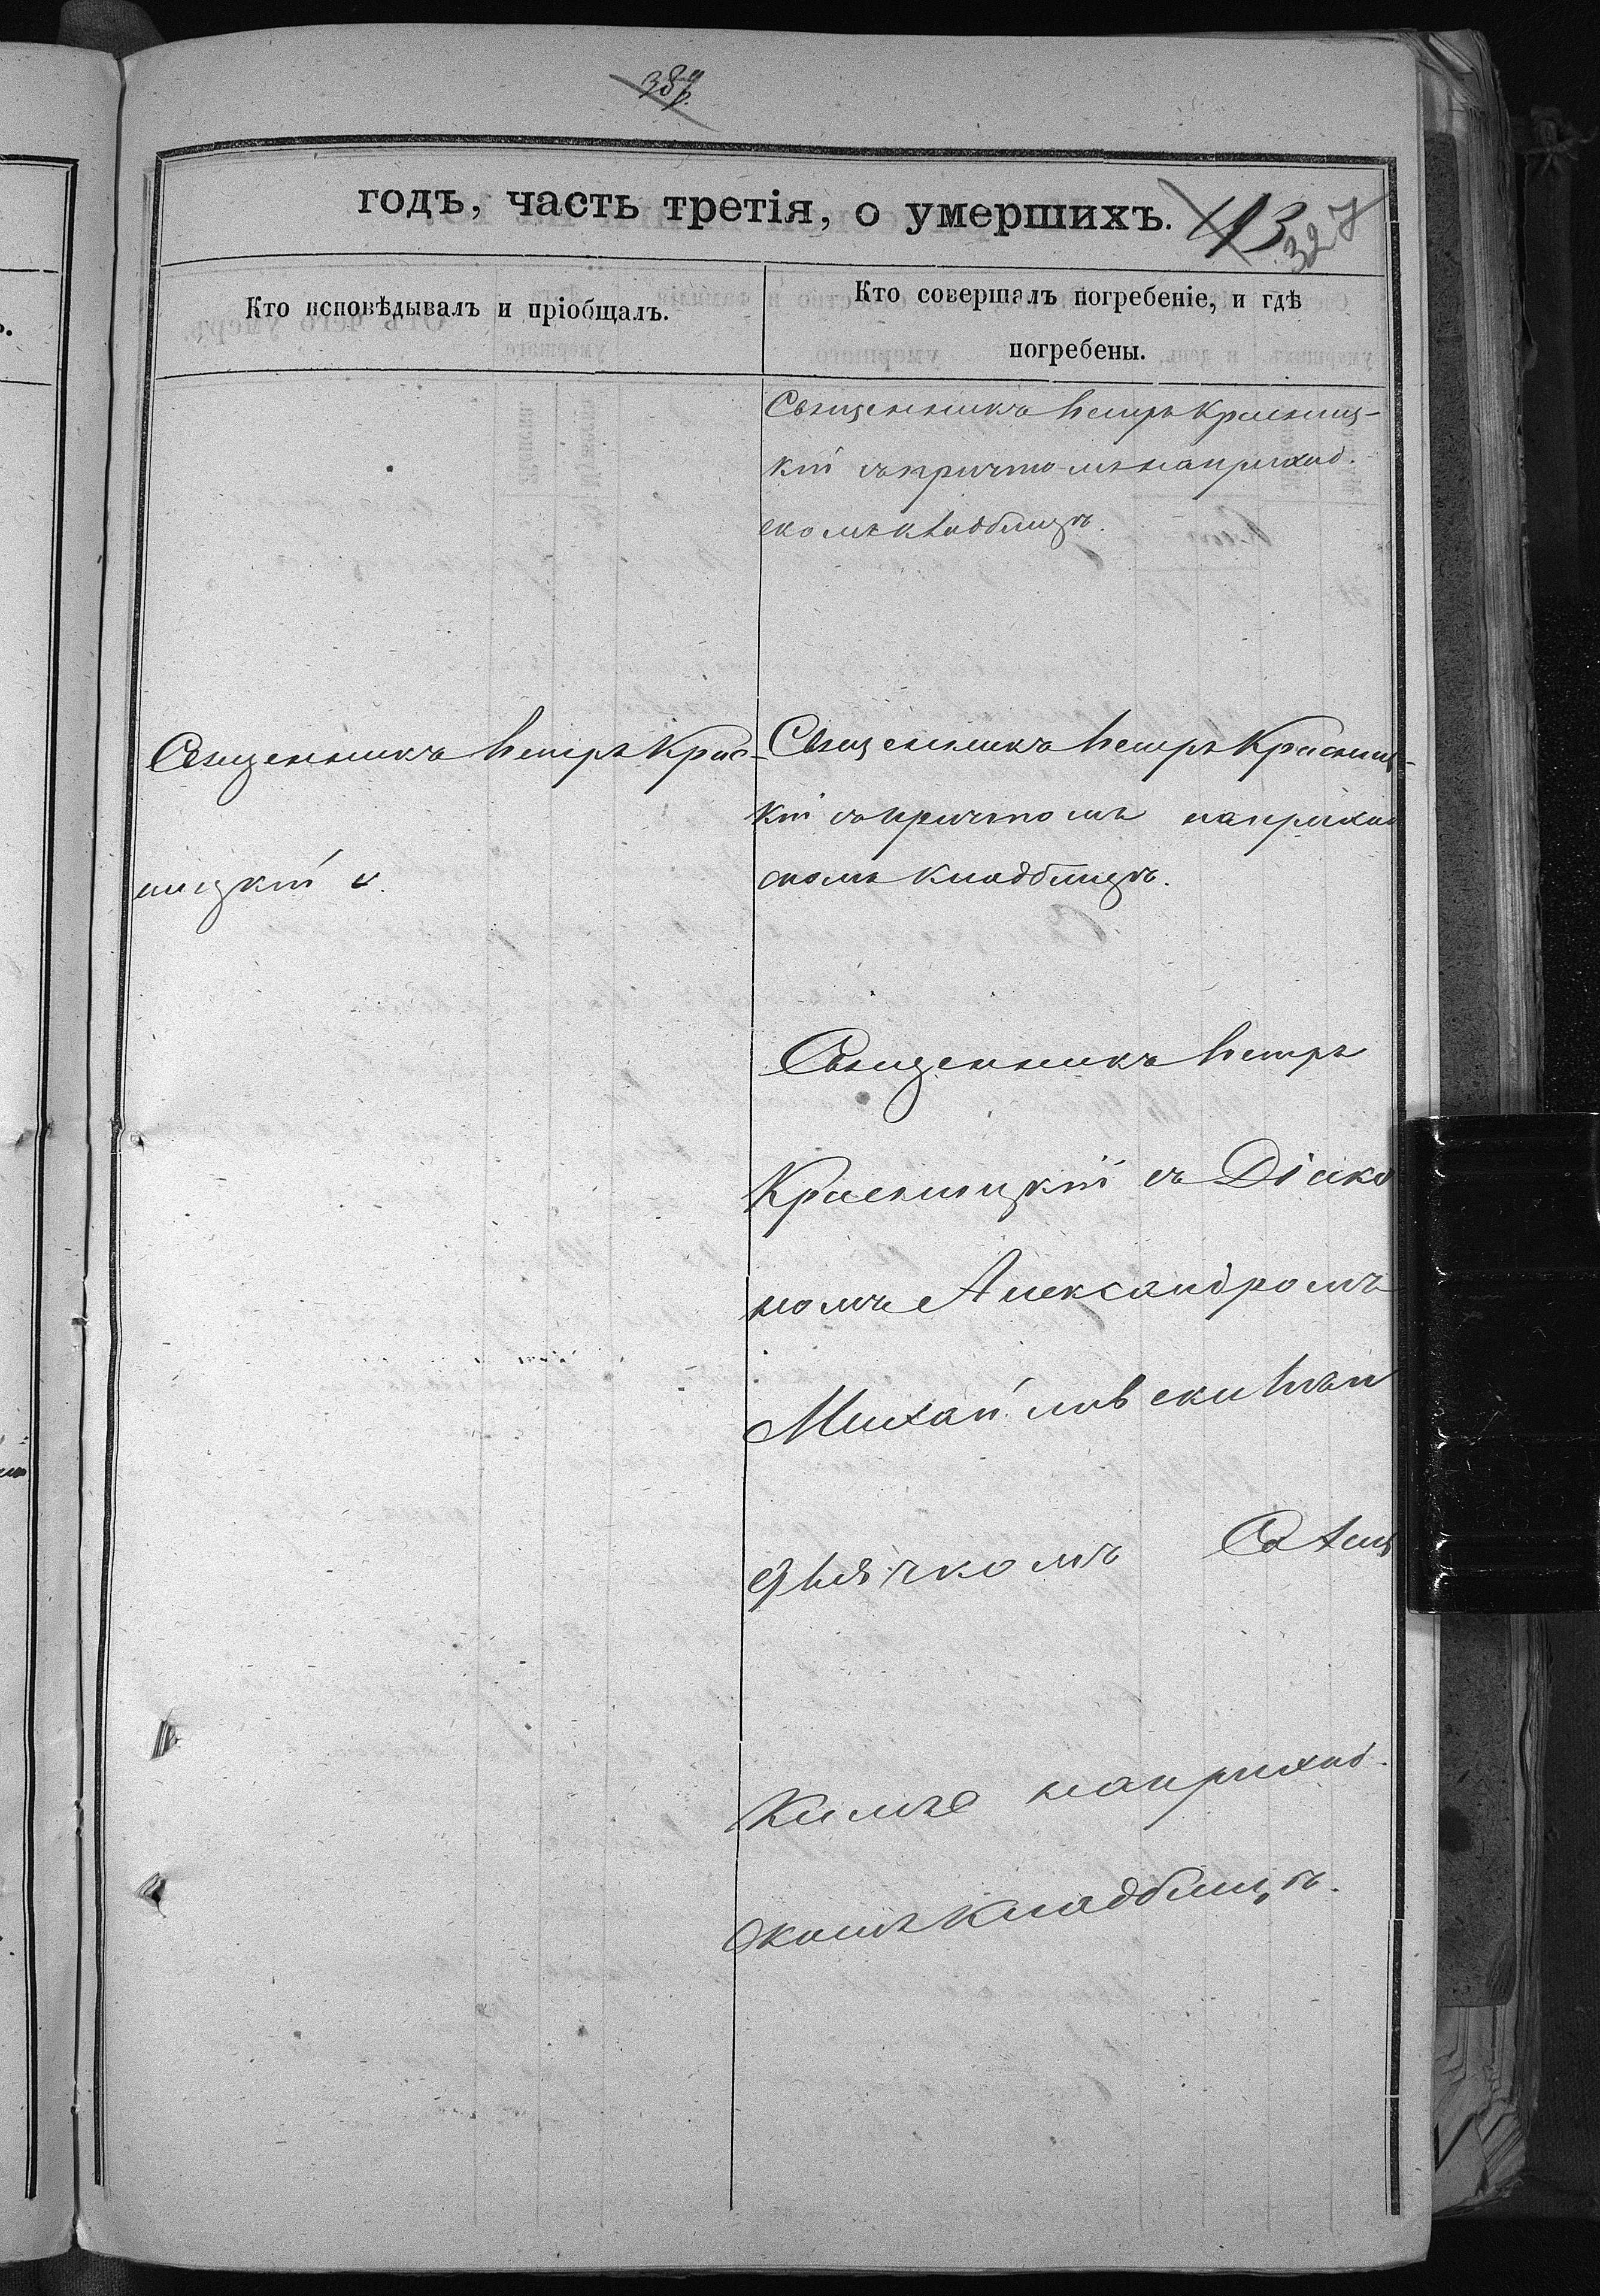 годъ, часть третія, о умершихъ.
43 327
Кто исповѣдывалъ и пріобщалъ.
Кто совершалъ погребеніе, и гдѣ
погребены.
Священникъ Петръ Красниц-
кій съ причтомъ на приход.
скомъ кладбищѣ.
Священникъ Петръ Крас-
ницкій
Священникъ Петръ Красниц-
кій съ причтомъ на приход
скомъ кладбищѣ.
Священникъ Петръ
Красницкій съ Діако
номъ Александромъ
Михайловскимъ и
дьячкомъ
на приход.
скомъ кладбищѣ.